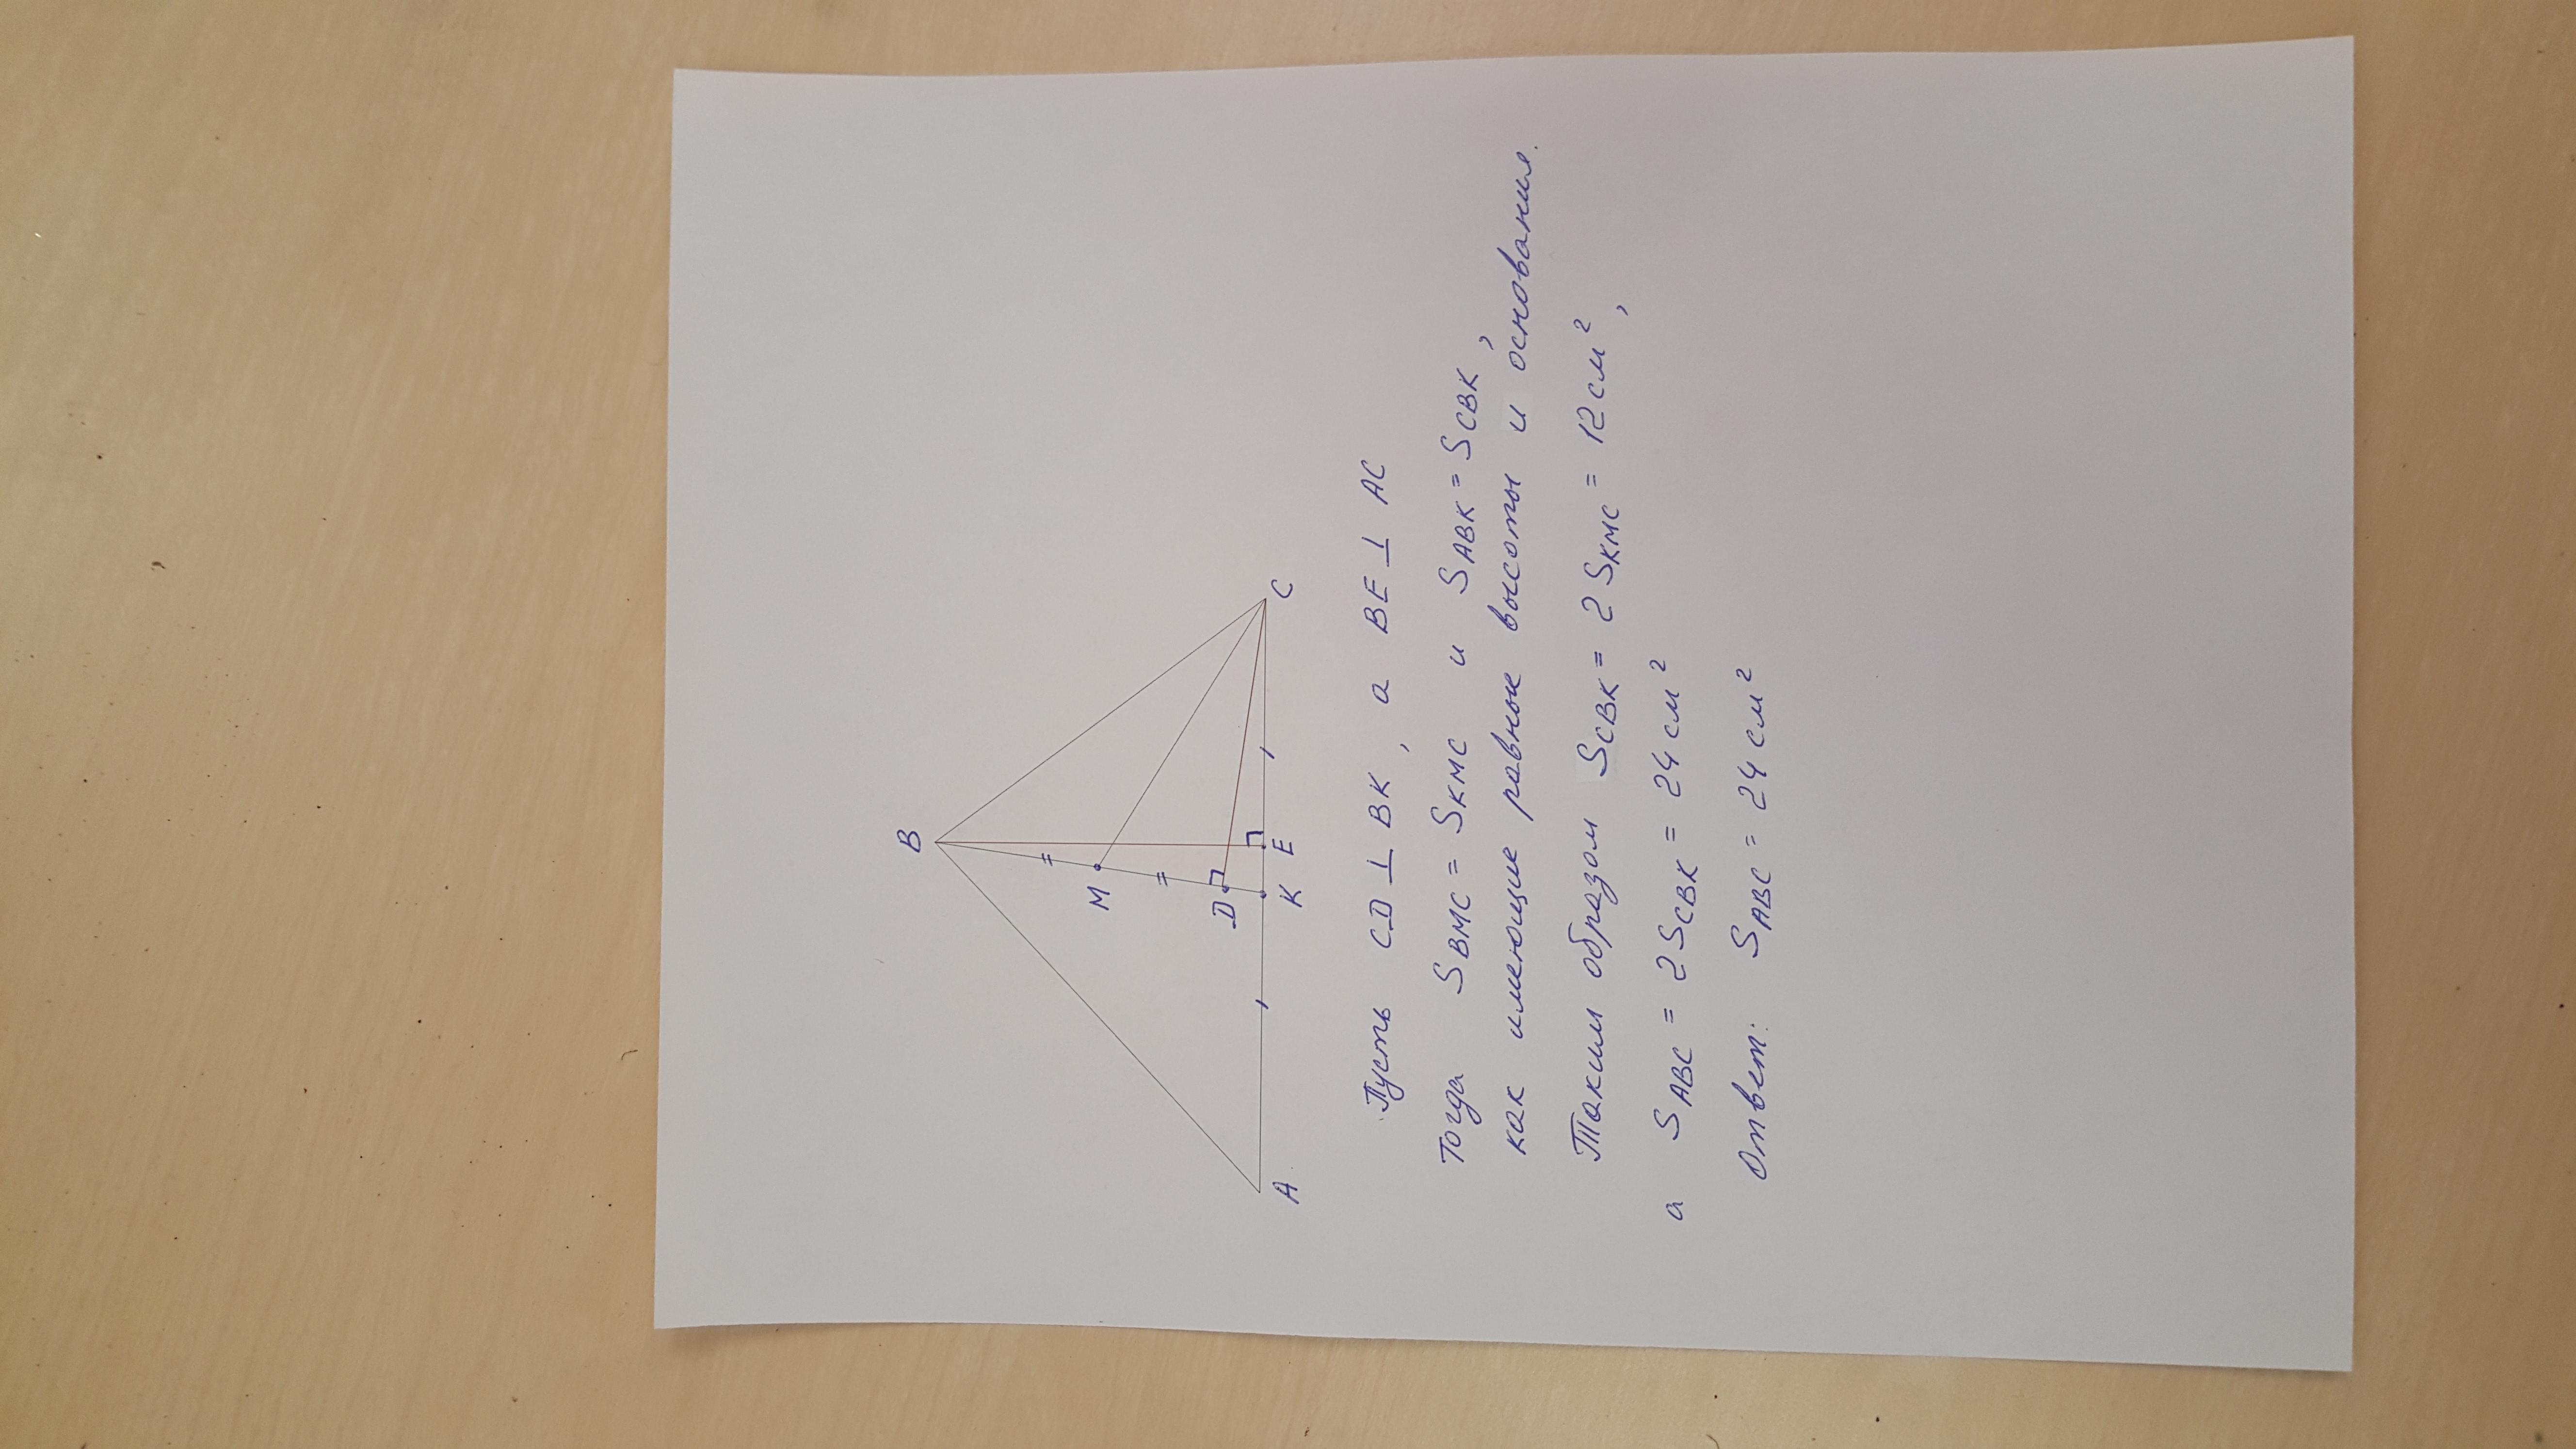 B
M
D
A K E C
Пусть CD ⊥ BK, а BE ⊥ AC
Тогда S BMC = S KMC и S ABK = S CBK,
как имеющие равные высоты и основания.
Таким образом S CBK = 2 S KMC = 12 см²,
а S ABC = 2 S CBK = 24 см²
Ответ: S ABC = 24 см²